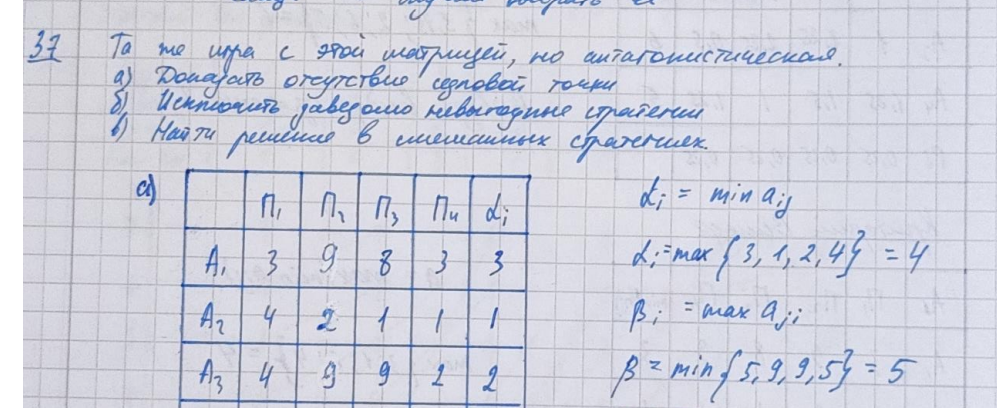 37 Та же игра с этой матрицей, но антагонистическая.
а) Доказать отсутствие седловой точки
б) Исключить заведомо невыгодные стратегии
в) Найти решение в смешанных стратегиях.
а)
П₁ П₂ П₃ П₄ αᵢ
A₁ 3 9 8 3 3
A₂ 4 2 1 1 1
A₃ 4 9 9 2 2
αᵢ = min aᵢⱼ
αᵢ = max {3, 1, 2, 4} = 4
βᵢ = max aⱼᵢ
β = min {5, 9, 9, 5} = 5